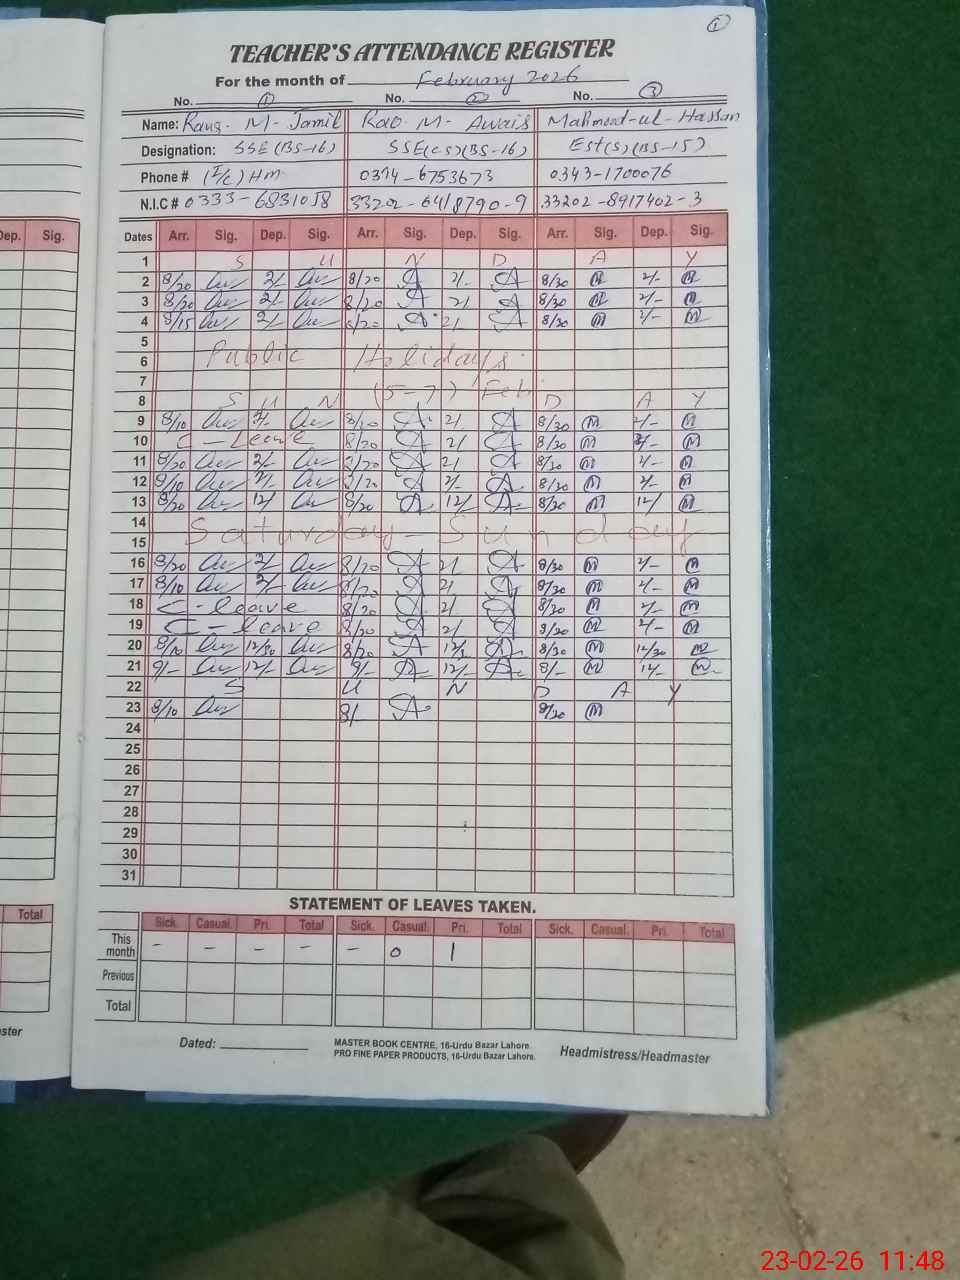 ①
TEACHER'S ATTENDANCE REGISTER
For the month of February 2026
No. ① No. ② No. ③
Name: Rana. M- Jamil Rao M- Awais Mahmood-ul-Hassan
Designation: SSE (BS-16) SSE(CS)(BS-16) Est(S)(BS-15)
Phone # (I/C) Hm 0314-6753673 0343-1700076
N.I.C # 0333-6831058 33202-6418790-9 33202-8917402-3
Dep. Sig. Dates Arr. Sig. Dep. Sig. Arr. Sig. Dep. Sig. Arr. Sig. Dep. Sig.
1 S U N D A Y
2 8/20 2/ 8/20 2/- 8/30 M 2/- M
3 8/20 2/ 8/20 2/ 8/30 M 2/- M
4 8/15 2/ 8/20 2/ 8/30 M 2/- M
5
6 Public Holidays
7 (5-7) Feb
8 S U N D A Y
9 8/10 2/- 8/20 2/ 8/30 M 2/- M
10 C-Leave 8/20 2/ 8/30 M 2/- M
11 8/20 2/- 8/20 2/ 8/30 M 2/- M
12 8/10 2/- 8/20 2/- 8/20 M 2/- M
13 8/20 12/ 8/20 12/ 8/20 M 12/ M
14
15 Saturday - Sunday
16 8/20 2/- 8/20 2/ 8/30 M 2/- M
17 8/10 2/- 8/20 2/ 8/30 M 2/- M
18 C-leave 8/20 2/ 8/30 M 2/- M
19 C-leave 8/20 2/ 8/20 M 2/- M
20 8/10 12/30 8/20 12/ 8/30 M 12/30 M
21 9/- 12/- 9/- 12/- 8/- M 12/- M
22 S U N D A Y
23 8/10 8/ 8/20 M
24
25
26
27
28
29
30
31
STATEMENT OF LEAVES TAKEN.
Total Sick. Casual. Pri. Total Sick. Casual. Pri. Total Sick. Casual. Pri. Total
This month - - - - - 0 1
Previous
Total
ster Dated: MASTER BOOK CENTRE, 16-Urdu Bazar Lahore. Headmistress/Headmaster
PRO FINE PAPER PRODUCTS, 16-Urdu Bazar Lahore.
23-02-26 11:48